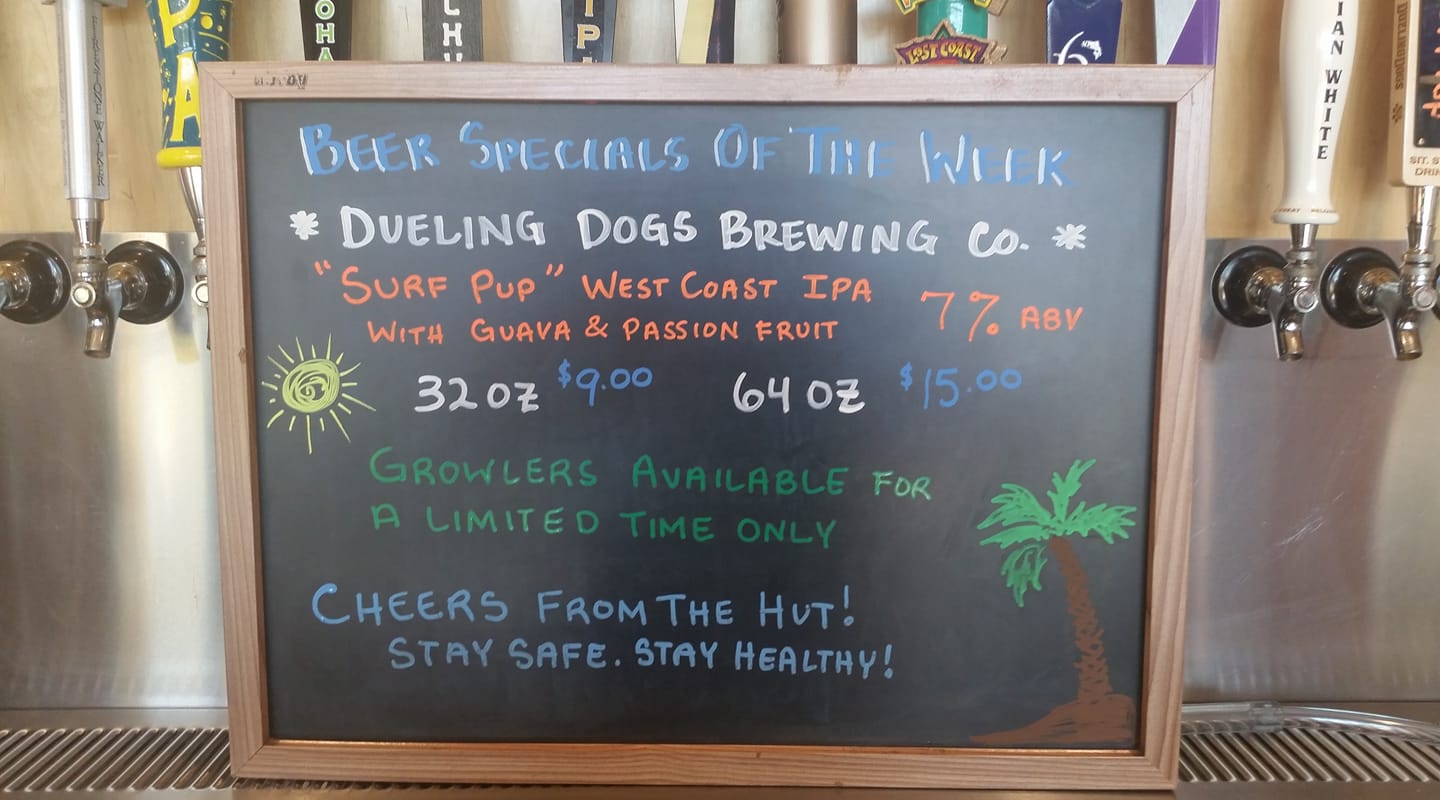 OHA
CHV
IP
PA
LOST COAST
IAN WHITE
BEER SPECIALS OF THE WEEK
* DUELING DOGS BREWING CO. *
"SURF PUP" WEST COAST IPA
WITH GUAVA & PASSION FRUIT
7% ABV
32 OZ $9.00 64 OZ $15.00
GROWLERS AVAILABLE FOR
A LIMITED TIME ONLY
CHEERS FROM THE HUT!
STAY SAFE. STAY HEALTHY!